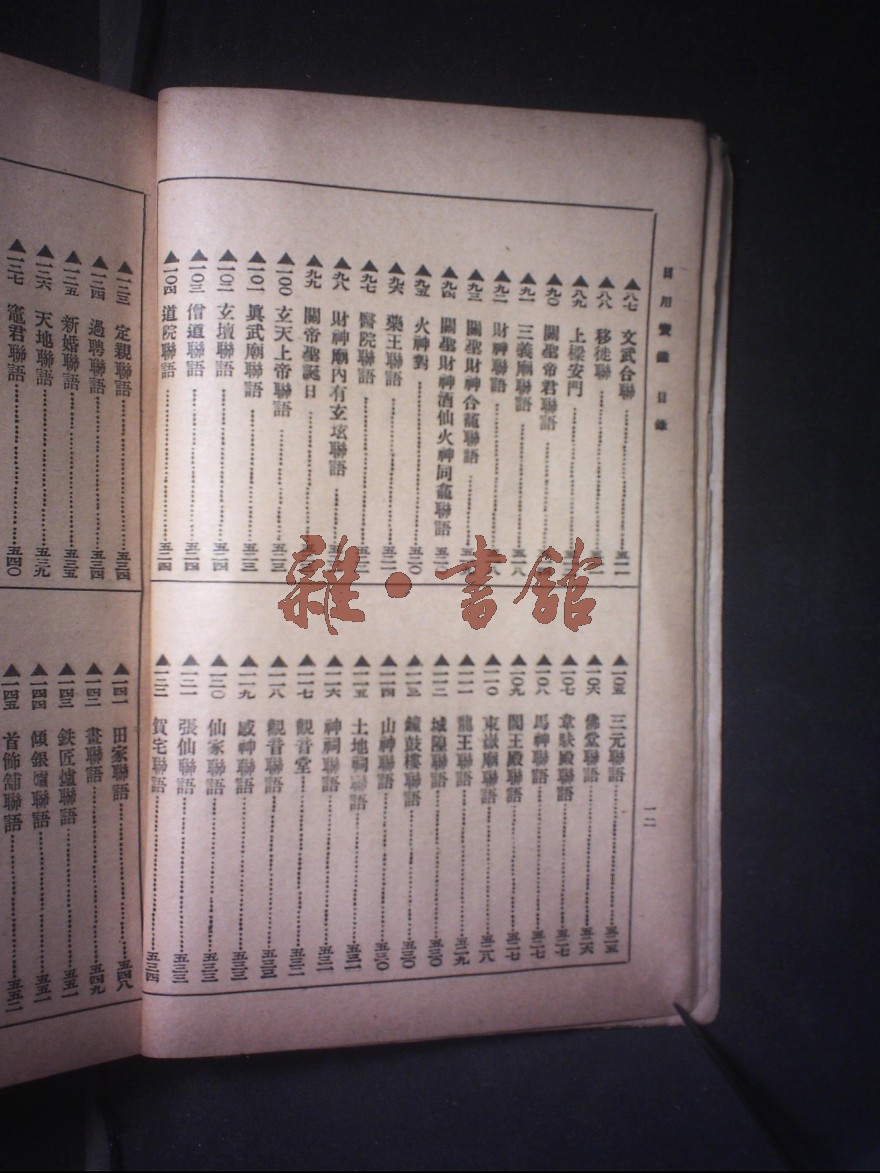 日用寶鑑 目錄
一二
▲八七 文武合聯……五一一
▲八八 移徙聯……五一
▲八九 上樑安門……五
▲九〇 關聖帝君聯語
▲九一 三義廟聯語……五一八
▲九二 財神聯語……八
▲九三 關聖財神合龕聯語……五
▲九四 關聖財神酒仙火神同龕聯語 五二〇
▲九五 火神對……五二〇
▲九六 藥王聯語……五二一
▲九七 醫院聯語……五二二
▲九八 財神廟內有玄坛聯語……五
▲九九 關帝聖誕日……五二
▲一〇〇 玄天上帝聯語……五二三
▲一〇一 眞武廟聯語……五二三
▲一〇二 玄壇聯語……五二四
▲一〇三 僧道聯語……五二四
▲一〇四 道院聯語……五二四
▲一〇五 三元聯語……五二五
▲一〇六 佛堂聯語……五二六
▲一〇七 韋馱殿聯語……五二七
▲一〇八 馬神聯語……五二七
▲一〇九 閻王殿聯語……五二七
▲一一〇 東嶽廟聯語……五二八
▲一一一 龍王聯語……五二九
▲一一二 城隍聯語……五三〇
▲一一三 鐘鼓樓聯語……五三〇
▲一一四 山神聯語……五三〇
▲一一五 土地祠聯語……五三一
▲一一六 神祠聯語……五三一
▲一一七 觀音堂……五三二
▲一一八 觀音聯語……五三三
▲一一九 感神聯語……五三三
▲一二〇 仙家聯語……五三三
▲一二一 張仙聯語……五三三
▲一二二 賀宅聯語……五三四
▲一二三 定親聯語……五三四
▲一二四 過聘聯語……五三四
▲一二五 新婚聯語……五三五
▲一二六 天地聯語……五三九
▲一二七 竈君聯語……五四〇
▲一四一 田家聯語……五四八
▲一四二 畫聯語……五四九
▲一四三 鉄匠爐聯語……五五一
▲一四四 傾銀爐聯語……五五一
▲一四五 首飾舖聯語……五五二
雜·書館